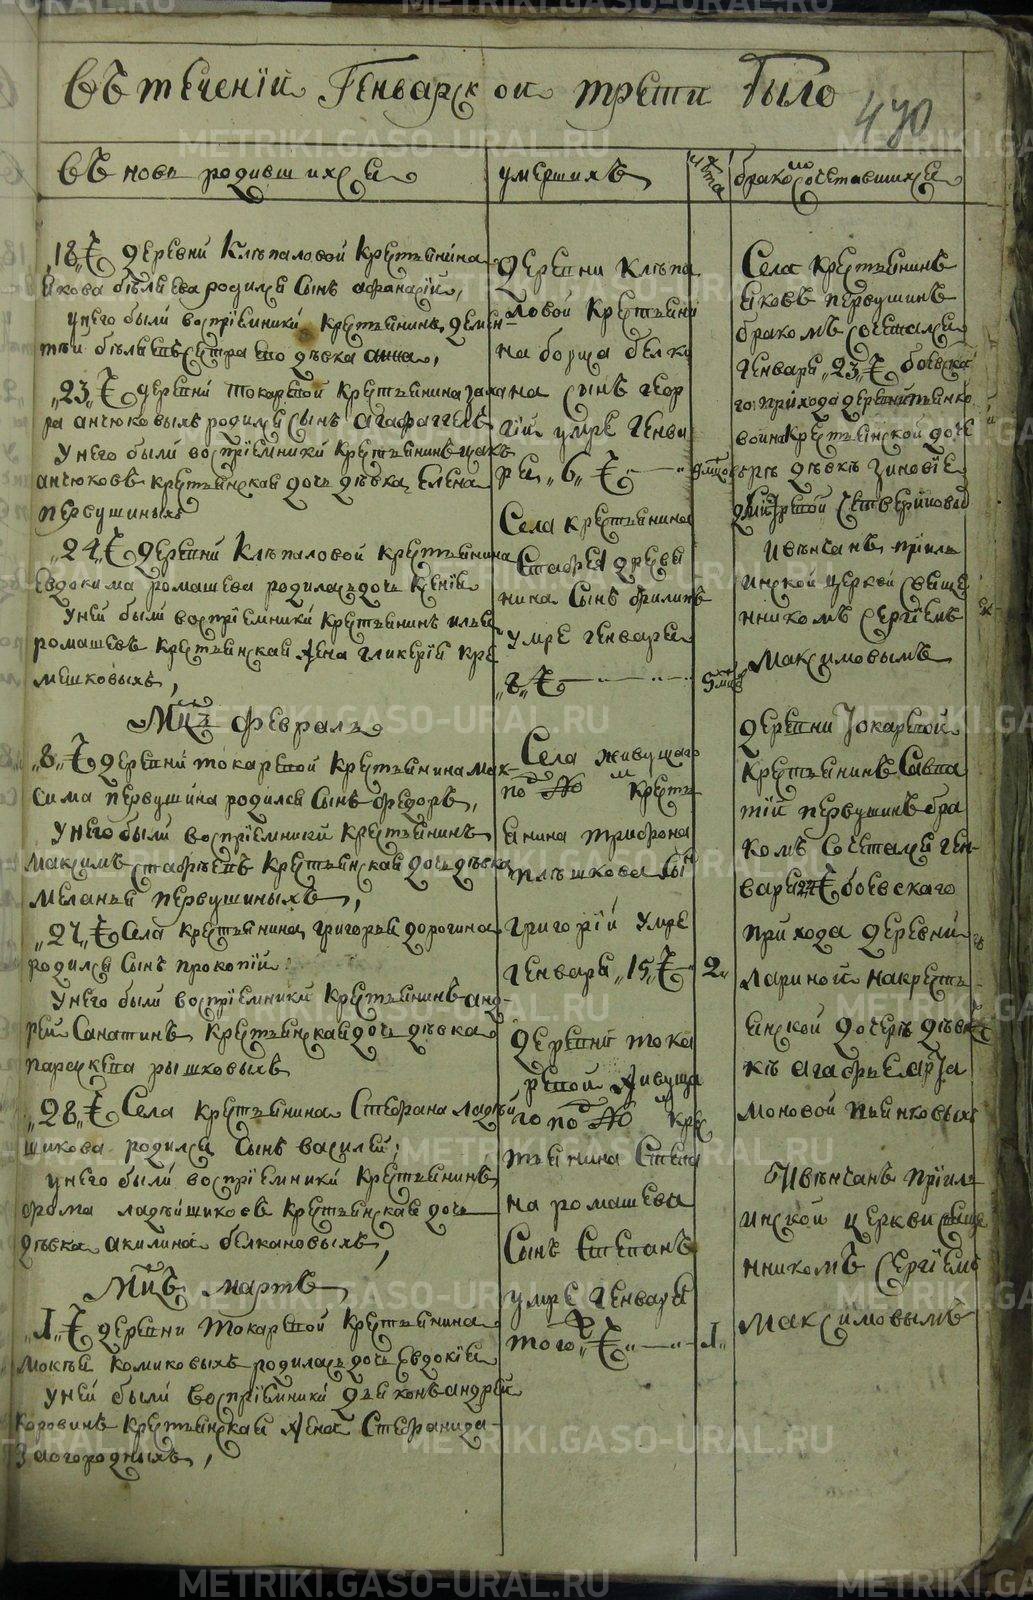 въ течении Генварской трети было
470
въ новь родившихся
18 ч деревни Клѣпаловой крестьянина
Якова бѣляева родился сынъ афанасий,
у него были восприемники крестьянинъ демен-
тьй бѣляевъ сестра ево дѣвка анна,
23 ч деревни токаревой крестьянина заха
ра анчюковыхъ родился сынъ агафаггелъ
у него были восприемники крестьянинъ
анчюковъ крестьянская дочь дѣвка Елена
первушиныхъ
24 ч деревни Клѣпаловой крестьянина
Евдокима ромашева родилась дочь Ксения
у ней были восприемники крестьянинъ илья
ромашевъ крестьянская жена гликерия кре
мешковыхъ,
Мцъ февраль
8 ч деревни токаревой крестьянина мак-
сима первушина родился сынъ федоръ,
у него были восприемники крестьянинъ
максимъ крестьянская дочь дѣвка
меланья первушиныхъ,
27 ч Села крестьянина григорья дорогина
родился сынъ прокопий
у него были восприемники крестьянинъ анд-
рей Санатинъ крестьянская дочь дѣвка
параскева рышковыхъ
28 ч Села крестьянина Стефана ладѣй
щикова родился сынъ василей;
у него были восприемники крестьянинъ
фома ладѣйщиковъ крестьянская дочь
дѣвка акилина белкановыхъ,
Мцъ мартъ
1 ч деревни токаревой крестьянина
мокѣя комиковыхъ родилась дочь Евдокия
у ней были восприемники дьяконъ андрей
Коровинъ крестьянская жена Стефанида
Заогородныхъ,
умершихъ
деревни Клѣпа
ловой крестьяни
на борща белку
на сынъ геор
гий умре генва
ря 6 ч
Села крестьянина
Евстафея древи
нина сынъ филипъ
умре генваря
ч
Села живущаго
по крестъ
янина трифона
плѣшкова сы
григорий умре
генваря 15 ч 2
деревни тока
ревой живуща
го по крес
тьянина степа
на ромашева
сынъ степанъ
умре генваря
того ч 1
лѣта
бракосочетавшихся
Села крестьянинъ
Яковъ первушинъ
бракомъ сочетался
генваря 23 ч боевска
го прихода деревни пьянко
вой на крестьянской доче
ре дѣвкѣ зиновие
Дмитревой Четвериковы
И вѣнчанъ при иль
инской церкви свяще
нникомъ Сергиемъ
Максимовымъ
деревни Токаревой
крестьянинъ Савва
тий первушинъ бра
комъ сочетался ген-
варя 24 ч боевскаго
прихода деревни
Лариной на крестъ-
янской дочерѣ дѣв
кѣ агафье арта
моновой пьянковых
И вѣнчанъ при иль
инской церкви свяще
нникомъ Сергиемъ
Максимовымъ
METRIKI.GASO-URAL.RU